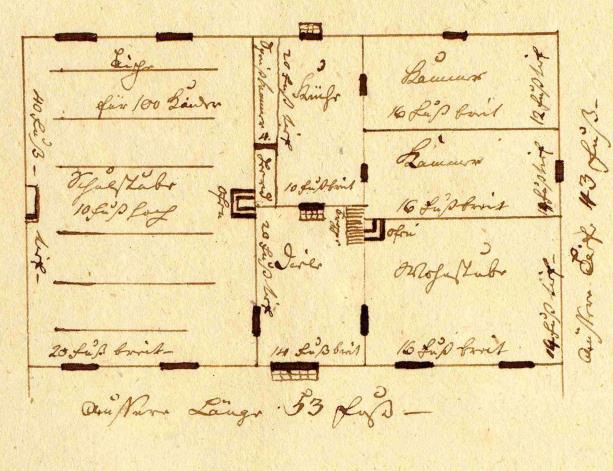 Tische
für 100 Kinder
40 Fuß tief
Schulstube
10 Fuß hoch
20 Fuß breit
Ofen
Speiskammer
20 Fuß tief
Küche
10 Fuß breit
20 Fuß tief
Diele
14 Fuß breit
Kammer
16 Fuß breit
12 Fuß tief
Kammer
16 Fuß breit
Fuß tief
Ofen
Wohnstube
16 Fuß breit
Fuß tief
Äussere Tiefe 43 Fuß
Äussere Länge 53 Fuß